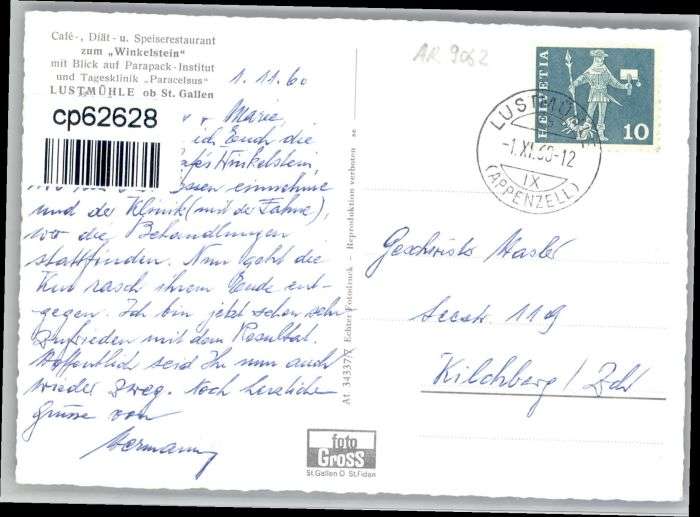 Café-, Diät- u. Speiserestaurant
zum „Winkelstein"
mit Blick auf Parapack-Institut
und Tagesklinik „Paracelsus"
LUSTMÜHLE ob St. Gallen
1.11.60
cp62628
Marie,
ich Euch die
Winkelstein,
essen einnehme
und der Klinik (mit der Fahne),
wo die Behandlungen
stattfinden. Nun geht die
Kur rasch ihrem Ende ent-
gegen. Ich bin jetzt schon sehr
zufrieden mit dem Resultat.
Hoffentlich seid Ihr nun auch
wieder zweg. Noch herzliche
Grüsse von
Hermann
At. 34337/7 Echter Fotodruck - Reproduktion verboten
foto
Gross
St. Gallen O St. Fiden
AR 9062
HELVETIA
10
LUSTMÜHLE
-1.XI.60-12
IX
(APPENZELL)
Geschwister Hasler
Seestr. 119
Kilchberg / Zch